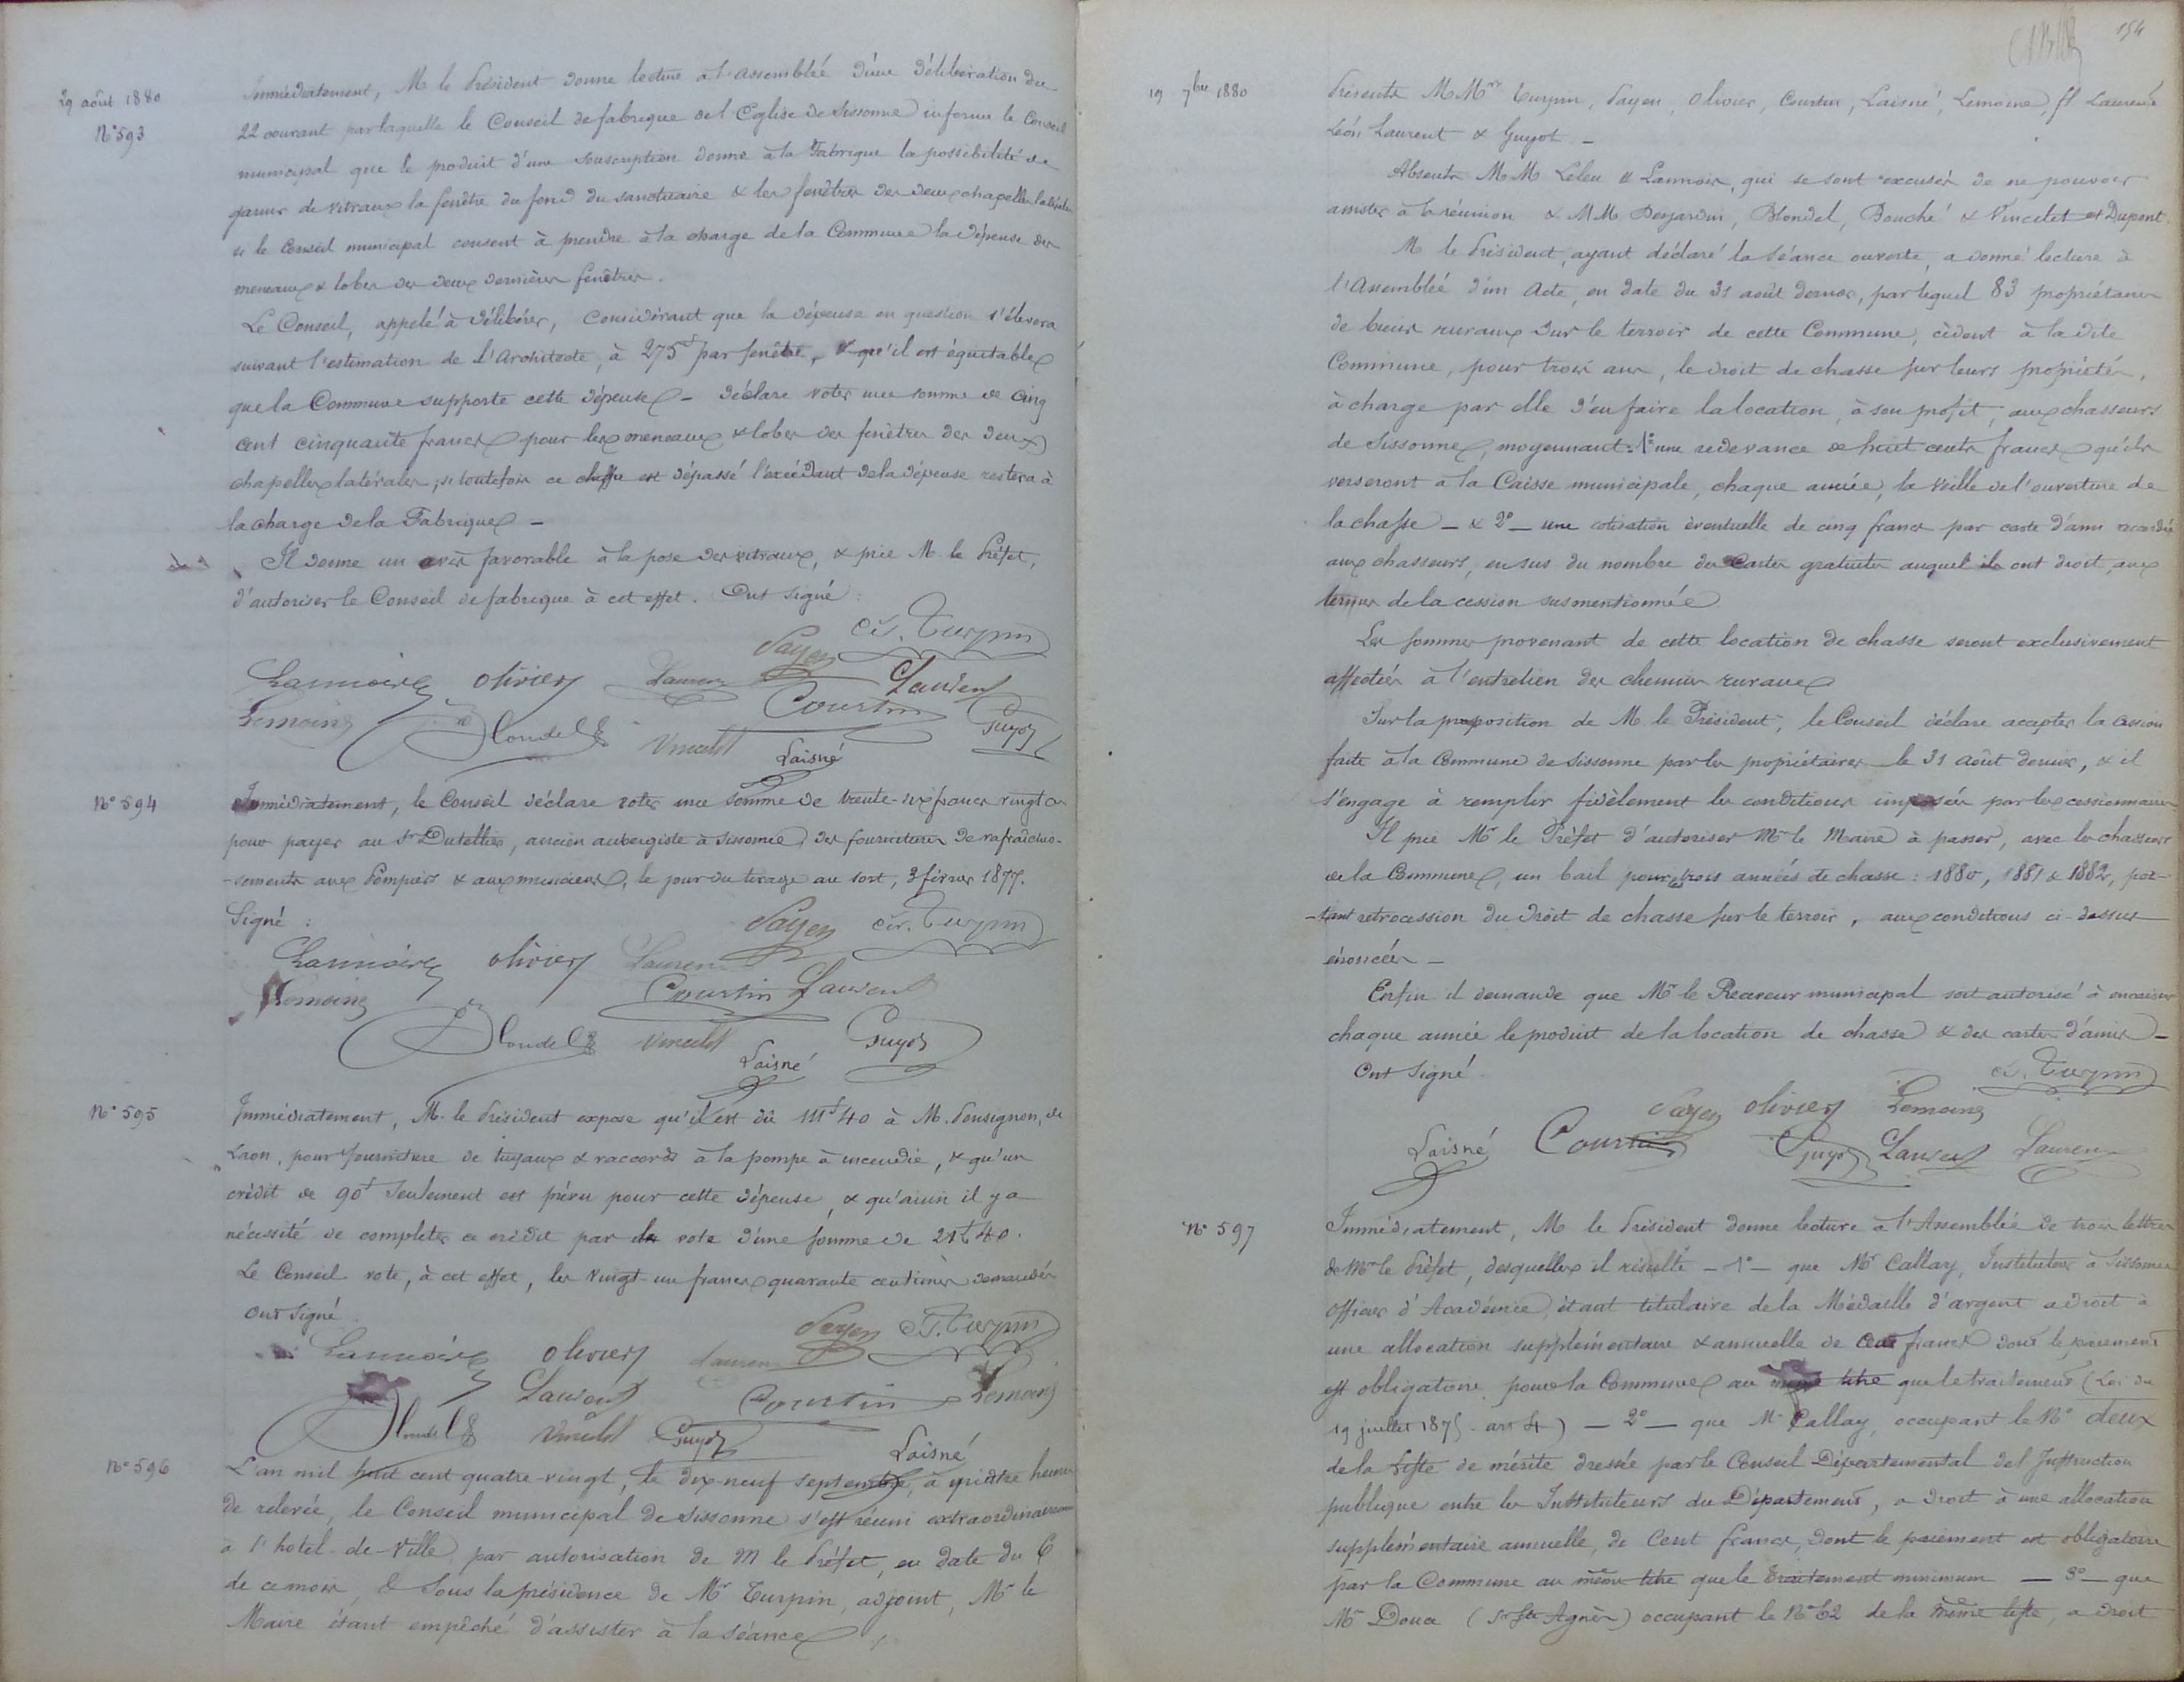 29 août 1880
N° 593
Immédiatement, M le Président donne lecture à l'assemblée d'une délibération du
22 courant par laquelle le Conseil de fabrique de l'Eglise de Sissonne informe le Conseil
municipal que le produit d'une souscription donne à la Fabrique la possibilité de
garnir de vitraux la fenêtre du fond du sanctuaire & les fenêtres des deux chapelles latérales
si le Conseil municipal consent à prendre à la charge de la Commune la dépense des
meneaux & lobes des deux dernières fenêtres.
Le Conseil, appelé à délibérer, Considérant que la dépense en question s'élevera
suivant l'estimation de l'Architecte, à 275f par fenêtre, & qu'il est équitable
que la Commune supporte cette dépense - déclare voter une somme de Cinq
cent cinquante francs pour les meneaux & lobes des fenêtres des deux
chapelles latérales; si toutefois ce chiffre est dépassé l'excédant de la dépense restera à
la charge de la Fabrique -
Il donne un avis favorable à la pose des vitraux, & prie M. le Préfet,
d'autoriser le Conseil de fabrique à cet effet. Ont signé :
Payen Cés. Turpin
Lannoire olivier Laurent Laurent
Lemoine Blondel Vincelet Courtin Laisné Guyot
N° 594
Immédiatement, le Conseil déclare voter une somme de trente-six francs vingt c
pour payer au Sr Dutellier, ancien aubergiste à Sissonne, des fournitures de rafraîchis-
-sements aux Pompiers & aux musiciens, le jour du tirage au sort, 3 février 1877.
Signé :
Payen Cés. Turpin
Lannoire olivier Laurent
Lemoine Courtin Laurent
Blondel Vincelet Laisné Guyot
N° 595
Immédiatement, M. le Président expose qu'il est dû 111f40 à M. Ponsignon, de
Laon, pour fourniture de tuyaux & raccords à la pompe à incendie, & qu'un
crédit de 90f seulement est prévu pour cette dépense, & qu'ainsi il y a
nécessité de completer ce crédit par le vote d'une somme de 21f40.
Le Conseil vote, à cet effet, les vingt-un francs quarante centimes demandés
Ont signé
Payen Cés. Turpin
Lannoire olivier Laurent
Laurent Courtin Lemoine
Blondel Vincelet Guyot Laisné
N° 596
L'an mil huit cent quatre-vingt, le dix-neuf septembre, à quatre heures
de relevée, le Conseil municipal de Sissonne s'est réuni extraordinairement
à l'hotel-de-Ville, par autorisation de M le Préfet, en date du 6
de ce mois, & sous la présidence de Mr Turpin, adjoint, Mr le
Maire étant empêché d'assister à la séance
154
19 7bre 1880
Présents MMrs Turpin, Payen, Olivier, Courtin, Laisné, Lemoine, ft Laurent
Léon Laurent & Guyot. -
Absents MM Leleu & Lannoire, qui se sont excusés de ne pouvoir
assister à la réunion & MM Desjardin, Blondel, Bouché & Vincelet et Dupont.
M le Président, ayant déclaré la séance ouverte, a donné lecture à
l'Assemblée d'un Acte, en date du 31 août dernier, par lequel 83 propriétaires
de biens ruraux sur le terroir de cette Commune, cèdent à la dite
Commune, pour trois ans, le droit de chasse sur leurs propriétés,
à charge par elle d'en faire la location, à son profit, aux chasseurs
de Sissonne, moyennant : 1° une redevance de huit cents francs qu'ils
verseront à la Caisse municipale, chaque année, la veille de l'ouverture de
la chasse - & 2° - une cotisation éventuelle de cinq francs par carte d'ami accordée
aux chasseurs, en sus du nombre de Cartes gratuites auquel ils ont droit, aux
termes de la cession susmentionnée
Les sommes provenant de cette location de chasse seront exclusivement
affectées à l'entretien des chemins ruraux
Sur la proposition de M le Président, le Conseil déclare accepter la cession
faite à la Commune de Sissonne par les propriétaires le 31 août dernier, & il
s'engage à remplir fidèlement les conditions imposées par les cessionnaires
Il prie Mr le Préfet d'autoriser Mr le Maire à passer, avec les chasseurs
de la Commune, un bail pour les trois années de chasse : 1880, 1881 & 1882, por-
-tant retrocession du droit de chasse sur le terroir, aux conditions ci-dessus
énoncées -
Enfin il demande que Mr le Receveur municipal soit autorisé à encaisser
chaque année le produit de la location de chasse & des cartes d'amis -
Ont signé
Cés. Turpin
Payen olivier Lemoine
Laisné Courtin Guyot Laurent Laurent
N° 597
Immédiatement, M le Président donne lecture à l'Assemblée de trois lettres
de Mr le Préfet, desquelles il résulte - 1° - que Mr Callay, Instituteur à Sissonne
Officier d'Académie, étant titulaire de la Médaille d'argent a droit à
une allocation supplémentaire & annuelle de Cent francs dont le paiement
est obligatoire pour la Commune au même titre que le traitement (Loi du
19 juillet 1875 - art 4) - 2° - que Mr Callay, occupant le N° deux
de la Liste de mérite dressée par le Conseil Départemental de l'Instruction
publique entre les Instituteurs du Département, a droit à une allocation
supplémentaire annuelle, de Cent francs, dont le paiement est obligatoire
par la Commune au même titre que le Traitement minimum - 3° - que
Me Douce (Sr Ste Agnès) occupant le N° 62 de la même liste, a droit